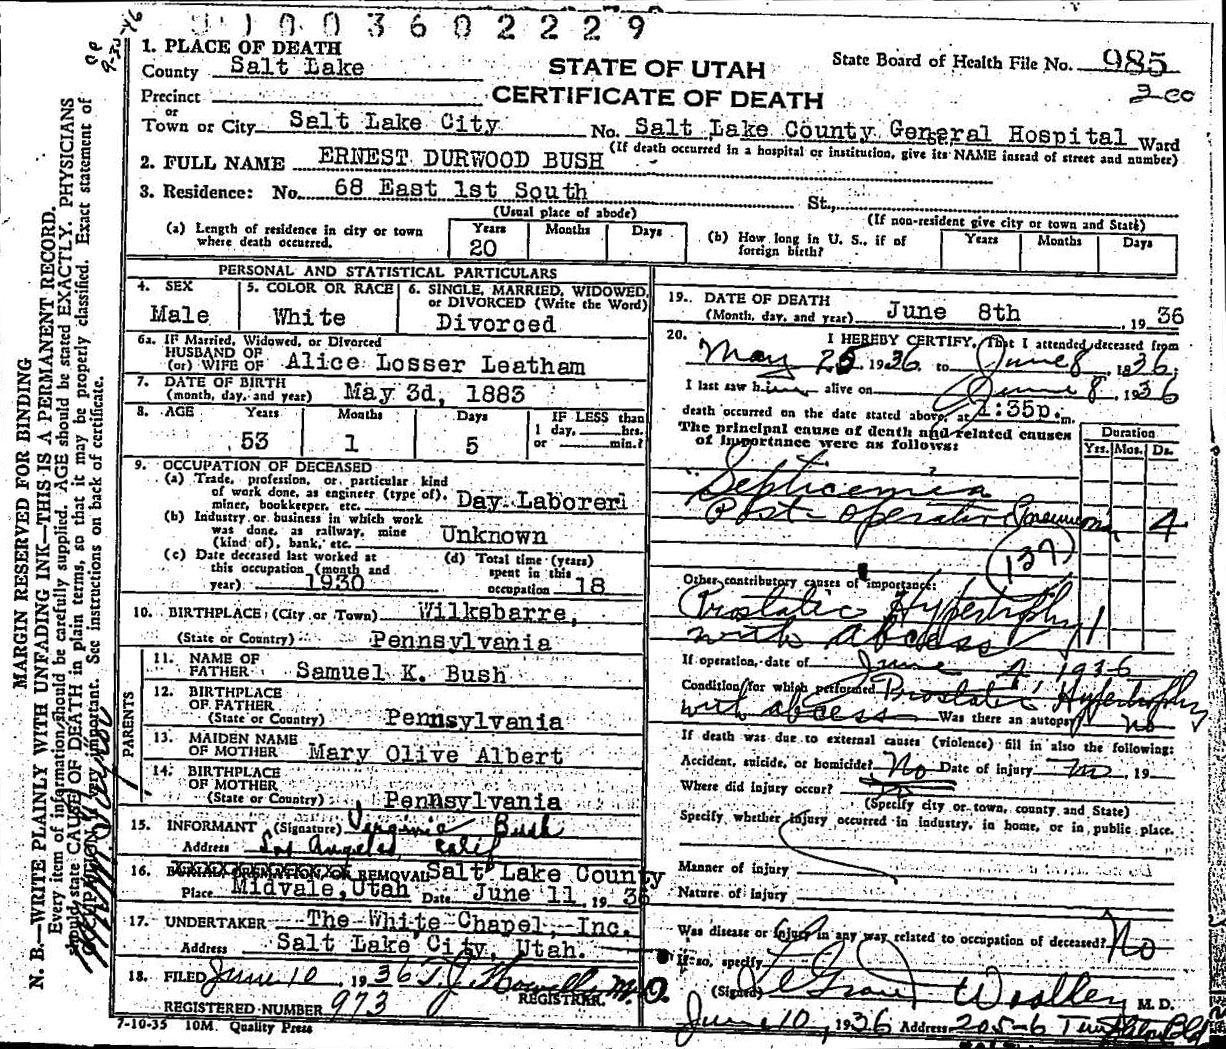 9100360 2229
1. PLACE OF DEATH
County Salt Lake
STATE OF UTAH
CERTIFICATE OF DEATH
State Board of Health File No. 985
200
Precinct
or
Town or City Salt Lake City No. Salt Lake County General Hospital Ward
(If death occurred in a hospital or institution, give its NAME instead of street and number)
2. FULL NAME ERNEST DURWOOD BUSH
3. Residence: No. 68 East 1st South St.,
(Usual place of abode) (If non-resident give city or town and State)
(a) Length of residence in city or town where death occurred. Years 20 Months Days
(b) How long in U. S., if of foreign birth? Years Months Days
PERSONAL AND STATISTICAL PARTICULARS
4. SEX Male
5. COLOR OR RACE White
6. SINGLE, MARRIED, WIDOWED, or DIVORCED (Write the Word) Divorced
6a. If Married, Widowed, or Divorced
HUSBAND OF
(or) WIFE OF Alice Losser Leatham
7. DATE OF BIRTH
(month, day, and year) May 3d, 1883
8. AGE Years 53 Months 1 Days 5 IF LESS than 1 day, hrs. or min.?
9. OCCUPATION OF DECEASED
(a) Trade, profession, or particular kind of work done, as engineer (type of), miner, bookkeeper, etc. Day Laborer
(b) Industry or business in which work was done, as railway, mine (kind of), bank, etc. Unknown
(c) Date deceased last worked at this occupation (month and year) 1930
(d) Total time (years) spent in this occupation 18
10. BIRTHPLACE (City or Town) Wilksbarre,
(State or Country) Pennsylvania
PARENTS
11. NAME OF FATHER Samuel K. Bush
12. BIRTHPLACE OF FATHER
(State or Country) Pennsylvania
13. MAIDEN NAME OF MOTHER Mary Olive Albert
14. BIRTHPLACE OF MOTHER
(State or Country) Pennsylvania
15. INFORMANT (Signature) Virginia Bush
Address Los Angeles, Calif
16. BURIAL, CREMATION, OR REMOVAL Salt Lake County
Place Midvale, Utah Date June 11, 1936
17. UNDERTAKER The White Chapel, Inc.
Address Salt Lake City, Utah.
18. FILED June 10, 1936 T. J. Howells M.D.
REGISTRAR
REGISTERED NUMBER 973
7-10-35 10M. Quality Press
19. DATE OF DEATH
(Month, day, and year) June 8th, 1936
20. I HEREBY CERTIFY, That I attended deceased from
May 25 1936 to June 8, 1936,
I last saw him alive on June 8, 1936
death occurred on the date stated above, at 1:35p.m.
The principal cause of death and related causes of importance were as follows:
Duration
Yrs. Mos. Ds.
Septicemia
Post-operative Pneumonia 4
(137)
Other contributory causes of importance:
Prostatic Hypertrophy 1
with abcess
If operation, date of June 4 1936
Condition for which performed Prostatic Hypertrophy
with abcess Was there an autopsy? no
If death was due to external causes (violence) fill in also the following:
Accident, suicide, or homicide? No Date of injury no, 19
Where did injury occur?
(Specify city or town, county and State)
Specify whether injury occurred in industry, in home, or in public place.
Manner of injury
Nature of injury
Was disease or injury in any way related to occupation of deceased? No
If so, specify
(Signed) Woolley M. D.
June 10, 1936 Address 205-6
MARGIN RESERVED FOR BINDING
N. B.—WRITE PLAINLY WITH UNFADING INK—THIS IS A PERMANENT RECORD.
Every item of information should be carefully supplied. AGE should be stated EXACTLY. PHYSICIANS
should state CAUSE OF DEATH in plain terms, so that it may be properly classified. Exact statement of
OCCUPATION is very important. See instructions on back of certificate.